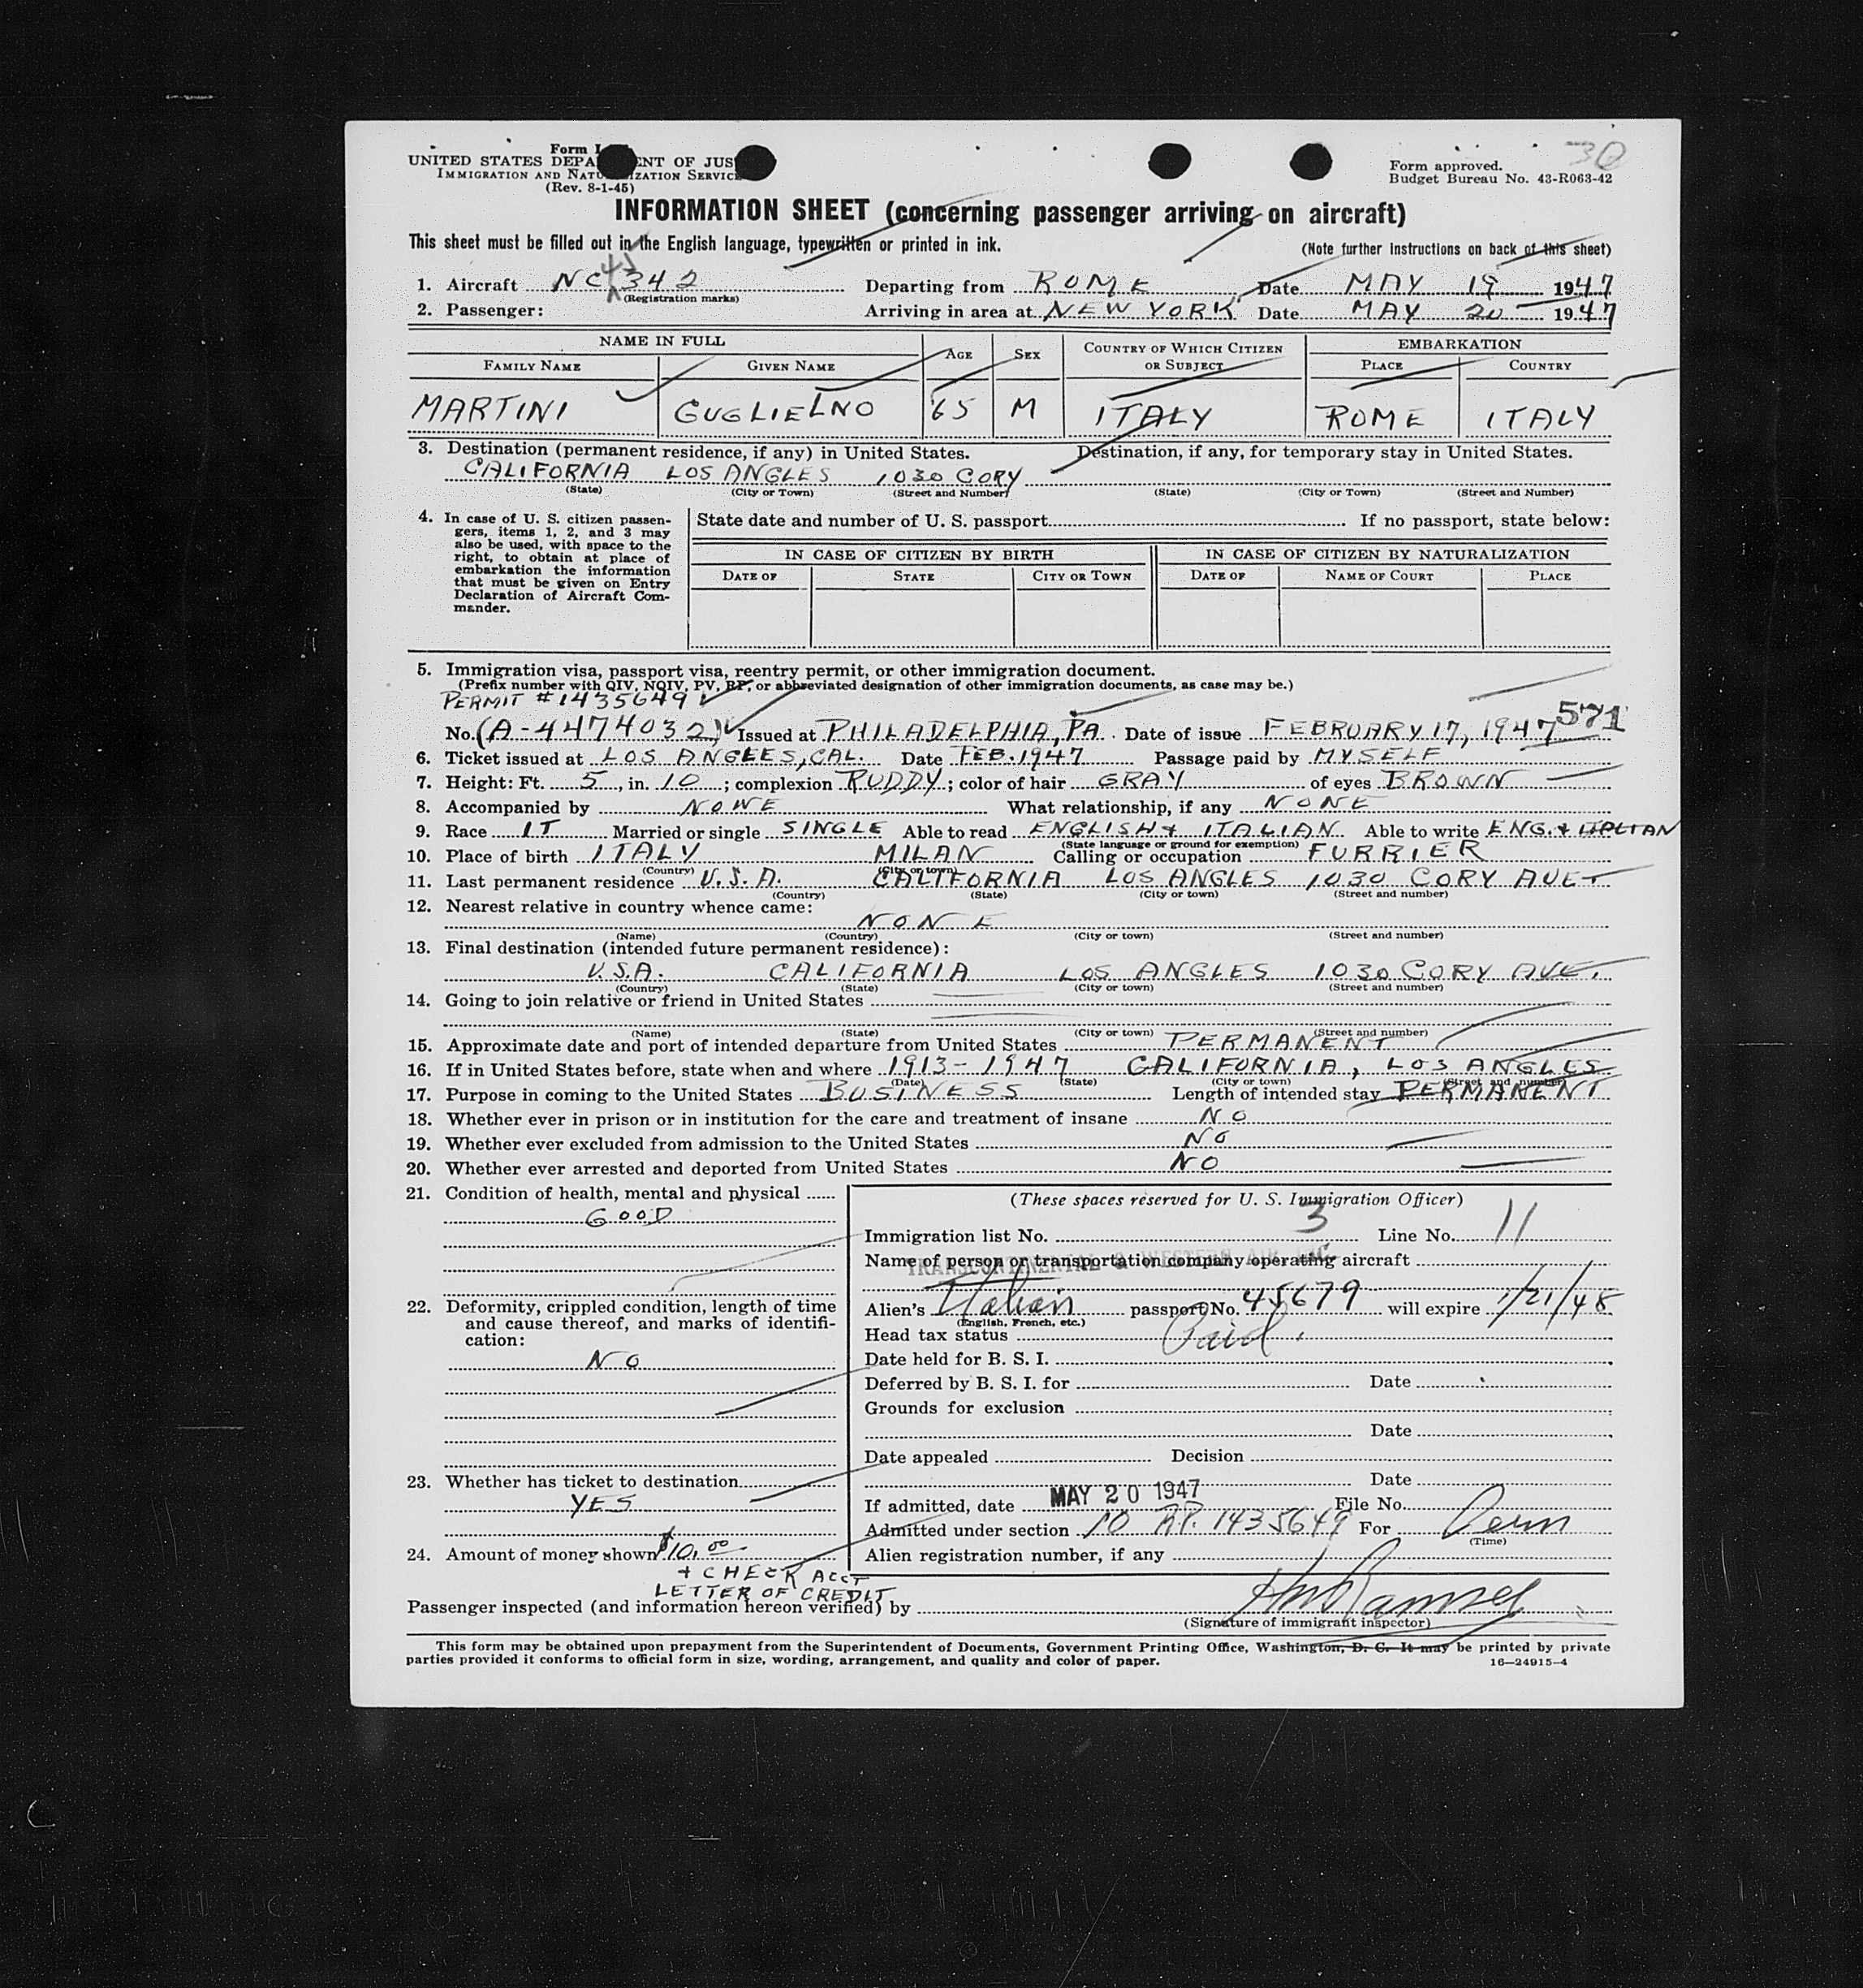 30
Form I
UNITED STATES DEPA ENT OF JUS
IMMIGRATION AND NATU IZATION SERVIC
(Rev. 8-1-45)
Form approved.
Budget Bureau No. 43-R063-42
INFORMATION SHEET (concerning passenger arriving on aircraft)
This sheet must be filled out in the English language, typewritten or printed in ink. (Note further instructions on back of this sheet)
1. Aircraft NC 45342 Departing from ROME Date MAY 19 1947
(Registration marks)
2. Passenger: Arriving in area at NEW YORK Date MAY 20 1947
NAME IN FULL AGE SEX COUNTRY OF WHICH CITIZEN OR SUBJECT EMBARKATION
FAMILY NAME GIVEN NAME PLACE COUNTRY
MARTINI GUGLIELNO 65 M ITALY ROME ITALY
3. Destination (permanent residence, if any) in United States. Destination, if any, for temporary stay in United States.
CALIFORNIA LOS ANGLES 1030 CORY
(State) (City or Town) (Street and Number) (State) (City or Town) (Street and Number)
4. In case of U. S. citizen passengers, items 1, 2, and 3 may also be used, with space to the right, to obtain at place of embarkation the information that must be given on Entry Declaration of Aircraft Commander.
State date and number of U. S. passport If no passport, state below:
IN CASE OF CITIZEN BY BIRTH IN CASE OF CITIZEN BY NATURALIZATION
DATE OF STATE CITY OR TOWN DATE OF NAME OF COURT PLACE
5. Immigration visa, passport visa, reentry permit, or other immigration document.
(Prefix number with QIV, NQIV, PV, RP, or abbreviated designation of other immigration documents, as case may be.)
PERMIT #1435649
No. (A-4474032) Issued at PHILADELPHIA, PA. Date of issue FEBRUARY 17, 1947 571
6. Ticket issued at LOS ANGLES, CAL. Date FEB. 1947 Passage paid by MYSELF
7. Height: Ft. 5, in. 10; complexion RUDDY; color of hair GRAY of eyes BROWN
8. Accompanied by NONE What relationship, if any NONE
9. Race IT Married or single SINGLE Able to read ENGLISH & ITALIAN Able to write ENG. & ITALIAN
(State language or ground for exemption)
10. Place of birth ITALY MILAN Calling or occupation FURRIER
(Country) (City or town)
11. Last permanent residence U.S.A. CALIFORNIA LOS ANGLES 1030 CORY AVE
(Country) (State) (City or town) (Street and number)
12. Nearest relative in country whence came:
NONE
(Name) (Country) (City or town) (Street and number)
13. Final destination (intended future permanent residence):
U.S.A. CALIFORNIA LOS ANGLES 1030 CORY AVE.
(Country) (State) (City or town) (Street and number)
14. Going to join relative or friend in United States
(Name) (State) (City or town) (Street and number)
15. Approximate date and port of intended departure from United States PERMANENT
16. If in United States before, state when and where 1913-1947 CALIFORNIA, LOS ANGLES
(Date) (State) (City or town) (Street and number)
17. Purpose in coming to the United States BUSINESS Length of intended stay PERMANENT
18. Whether ever in prison or in institution for the care and treatment of insane NO
19. Whether ever excluded from admission to the United States NO
20. Whether ever arrested and deported from United States NO
21. Condition of health, mental and physical
GOOD
22. Deformity, crippled condition, length of time and cause thereof, and marks of identification:
NO
23. Whether has ticket to destination
YES
24. Amount of money shown $10.00
+ CHECK ACCT
LETTER OF CREDIT
(These spaces reserved for U. S. Immigration Officer)
Immigration list No. 3 Line No. 11
TRANSCONTINENTAL & WESTERN AIR INC.
Name of person or transportation company operating aircraft
Alien's Italian passport No. 45679 will expire 1/21/48
(English, French, etc.)
Head tax status Paid.
Date held for B. S. I.
Deferred by B. S. I. for Date
Grounds for exclusion
Date
Date appealed Decision
Date
If admitted, date MAY 20 1947 File No.
Admitted under section 10 RP. 1435649 For Perm
(Time)
Alien registration number, if any
Passenger inspected (and information hereon verified) by
(Signature of immigrant inspector)
This form may be obtained upon prepayment from the Superintendent of Documents, Government Printing Office, Washington, D. C. It may be printed by private
parties provided it conforms to official form in size, wording, arrangement, and quality and color of paper. 16—24915-4